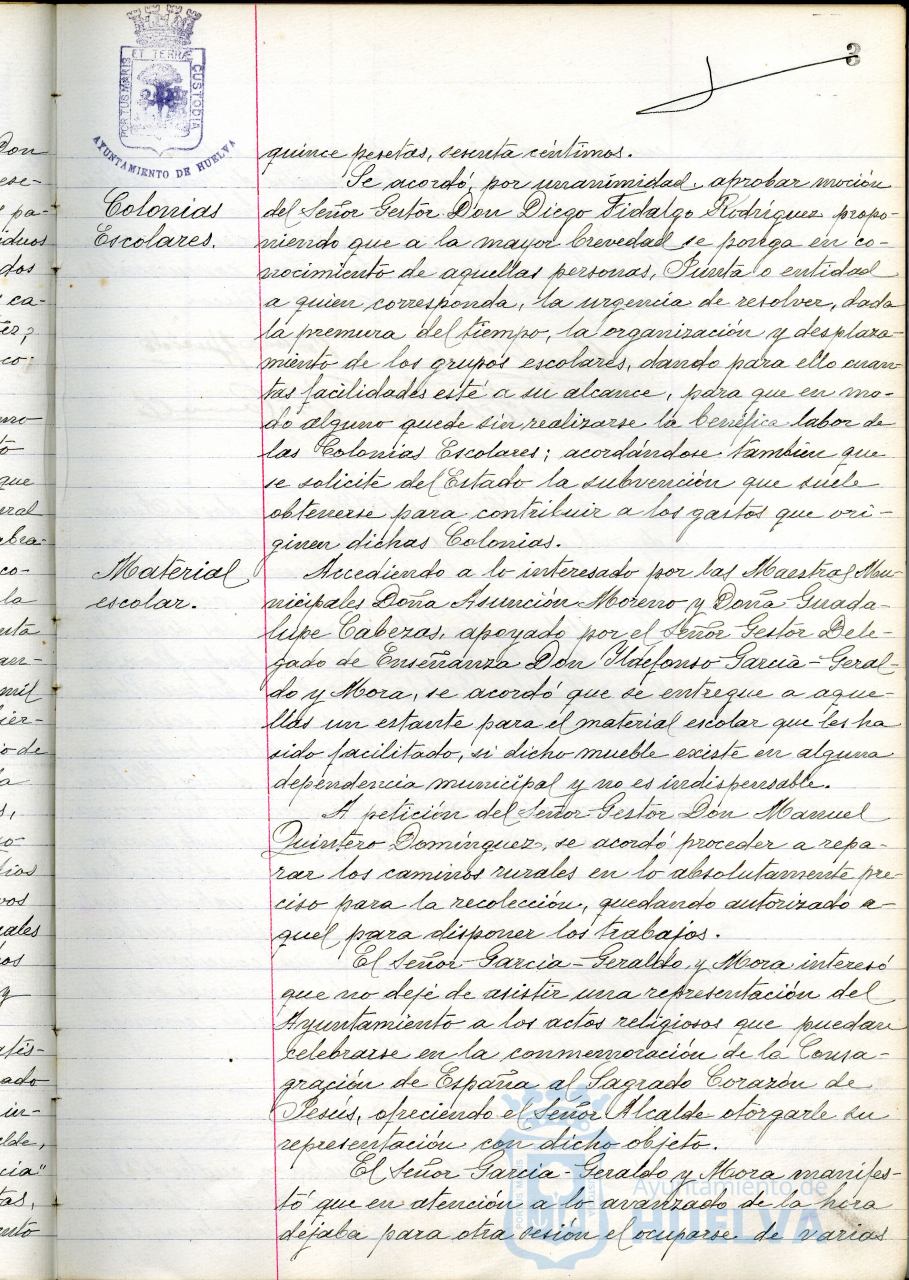 3
PORTUS MARIS
ET TERRÆ
CUSTODIA
AYUNTAMIENTO DE HUELVA
quince pesetas, sesenta céntimos.
Se acordó, por unanimidad, aprobar moción
Colonias
Escolares.
del Señor Gestor Don Diego Fidalgo Rodríguez propo-
niendo que a la mayor brevedad se ponga en co-
nocimiento de aquellas personas, Junta o entidad
a quien corresponda, la urgencia de resolver, dada
la premura del tiempo, la organización y desplaza-
miento de los grupos escolares, dando para ello cuan-
tas facilidades esté a su alcance, para que en mo-
do alguno quede sin realizarse la benéfica labor de
las Colonias Escolares; acordándose tambien que
se solicite del Estado la subvención que suele
obtenerse para contribuir a los gastos que ori-
ginen dichas Colonias.
Material
escolar.
Accediendo a lo interesado por las Maestras Mu-
nicipales Doña Asunción Moreno y Doña Guada-
lupe Cabezas, apoyado por el Señor Gestor Dele-
gado de Enseñanza Don Ildefonso Garcia-Geral-
do y Mora, se acordó que se entregue a aque-
llas un estante para el material escolar que les ha
sido facilitado, si dicho mueble existe en alguna
dependencia municipal y no es indispensable.
A petición del Señor Gestor Don Manuel
Quintero Domínguez, se acordó proceder a repa-
rar los caminos rurales en lo absolutamente pre-
ciso para la recolección, quedando autorizado a-
quel para disponer los trabajos.
El Señor Garcia-Geraldo y Mora interesó
que no deje de asistir una representación del
Ayuntamiento a los actos religiosos que puedan
celebrarse en la conmemoración de la Consa-
gración de España al Sagrado Corazón de
Jesús, ofreciendo el Señor Alcalde otorgarle su
representación con dicho objeto.
El Señor Garcia-Geraldo y Mora manifes-
tó que en atención a lo avanzado de la hora
dejaba para otra sesión el ocuparse de varias
Ayuntamiento de
HUELVA